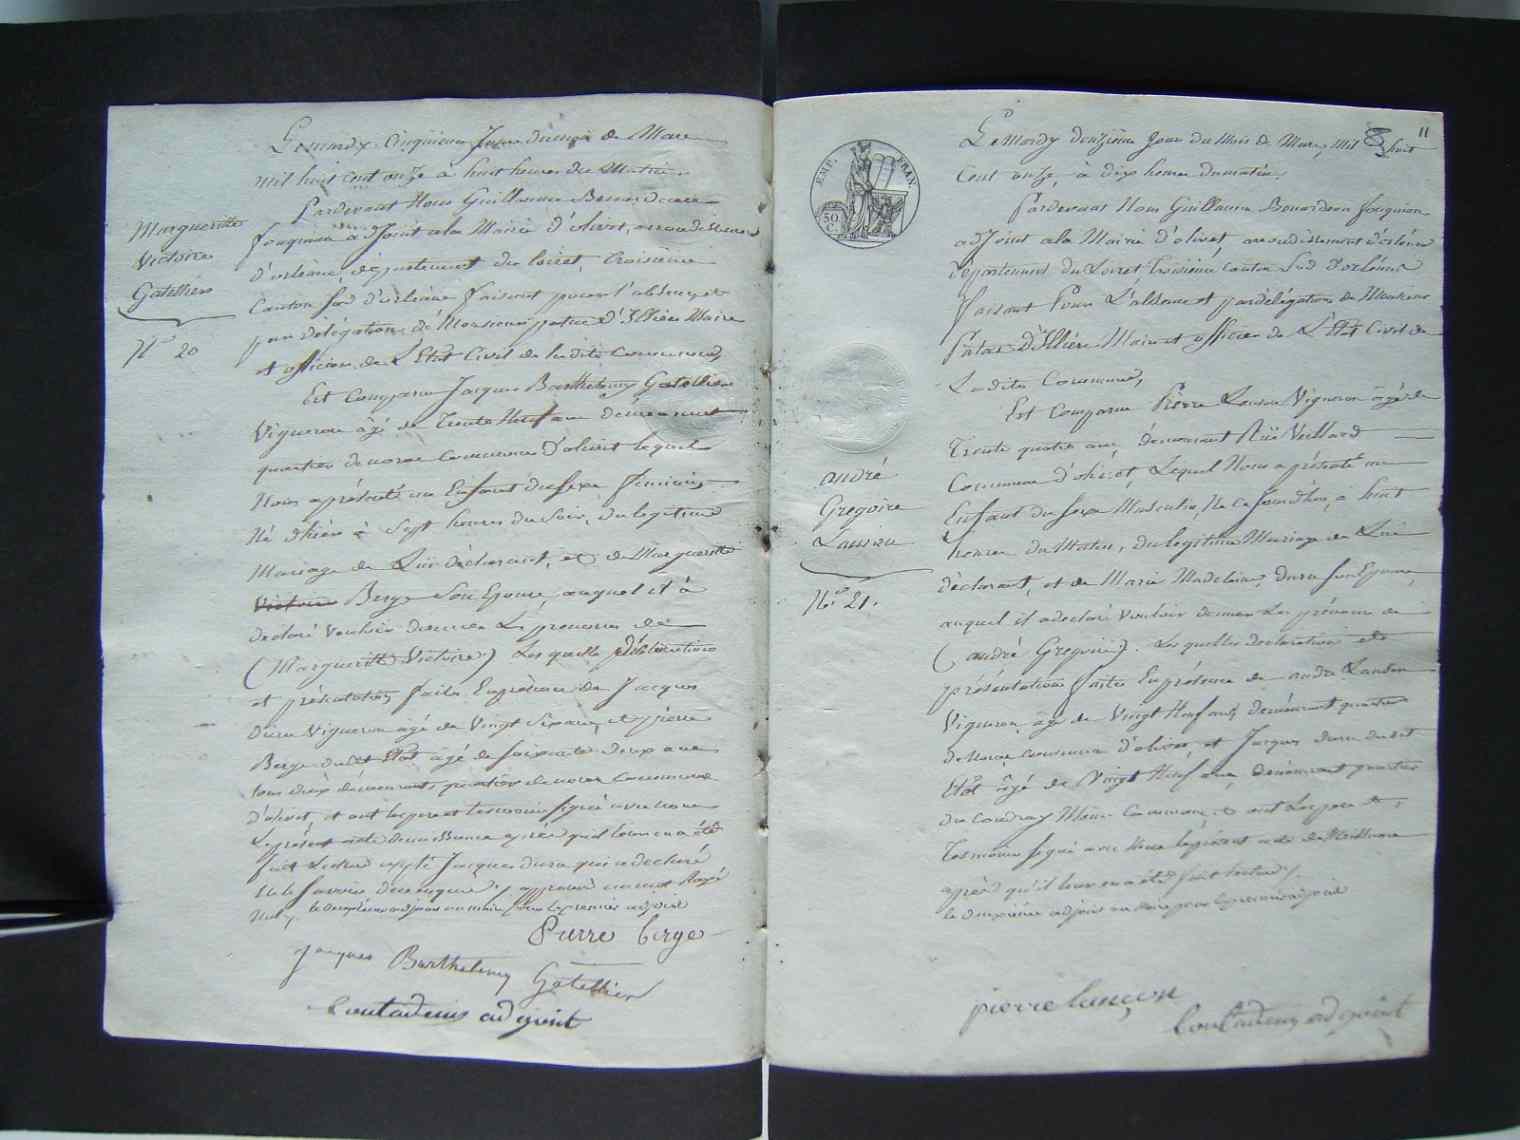 Le mardy Cinquieme Jour du mois de Mars
mil huit cent onze à huit heures du Matin.
Pardevant Nous Guillaume
adjoint ala Mairie d'olivet, arrondissement
d'orléans, département du loiret, troisieme
Canton sud d'orléans faisant pour l'absence et
par délégation de Monsieur patas d'Illiers Maire
et officier de L'Etat Civil de ladite Commune,
Est Comparu Jacques Barthelemy Gatellier
Vigneron agé de Trente Neuf ans demeurant
quartier de Commune d'olivet lequel
Nous a présenté un Enfant du sexe féminin,
Né d'hier à Sept heures du Soir, du legitime
Mariage de Lui déclarant, et de Marguerite
Victoire Berge son Epouse, auquel il à
declaré vouloir donner Les prenoms de
(Marguerite Victoire) Les quelles déclaration
et présentation faites En présence de Jacques
Dura Vigneron agé de Vingt ans, et pierre
Berge dudit Etat agé de soixante deux ans
tous deux demeurants quartier de Commune
d'olivet, et ont le pere et temoins signé avec nous
Le présent acte de naissance après qu'il leur en a été
fait Lecture Jacques dura qui a declaré
ne le savoir de ce enquis, approuvé un mot Rayé
Nul, le deuxieme adjoint au maire pour le premier adjoint
Pierre berge
Jacques Barthelemy Gatellier
adjoint
Marguerite
Victoire
Gatellier
N° 20
11
EMP. FRAN.
50
C.
Le Mardy douzieme Jour du Mois de Mars, mil huit
Cent onze, à dix heures du matin,
Pardevant Nous Guillaume
adjoint ala Mairie d'olivet, arrondissement d'orléans
département du Loiret Troisieme canton Sud d'orléans
faisant Pour L'absence et par délégation de Monsieur
Patas D'Illiers Maire et officier de L'Etat Civil de
Ladite Commune,
Est Comparu Pierre Lanson Vigneron agé de
Trente quatre ans, demeurant
Commune d'olivet, Lequel Nous a présenté un
Enfant du sexe Masculin, Né Ce à huit
heures du Matin, du legitime Mariage de Lui
déclarant, et de Marie Madelaine dura son Epouse,
auquel il a declaré vouloir donner Les prénoms de
(andré Gregoire). Les quelles declaration et
présentation faites En présence de andré Lanson
Vigneron agé de Vingt Neuf ans, demeurant quartier
de Commune d'olivet, et Jacques dura dudit
Etat agé de Vingt Neuf ans, demeurant quartier
du coudray Même Commune, & ont Le pere et
Temoins signé avec Nous Le présent acte de Naissance
après qu'il leur en a été fait lecture,
le deuxieme adjoint au maire pour le premier adjoint
pierre lançon
adjoint
andré
Gregoire
Lanson
N° 21.